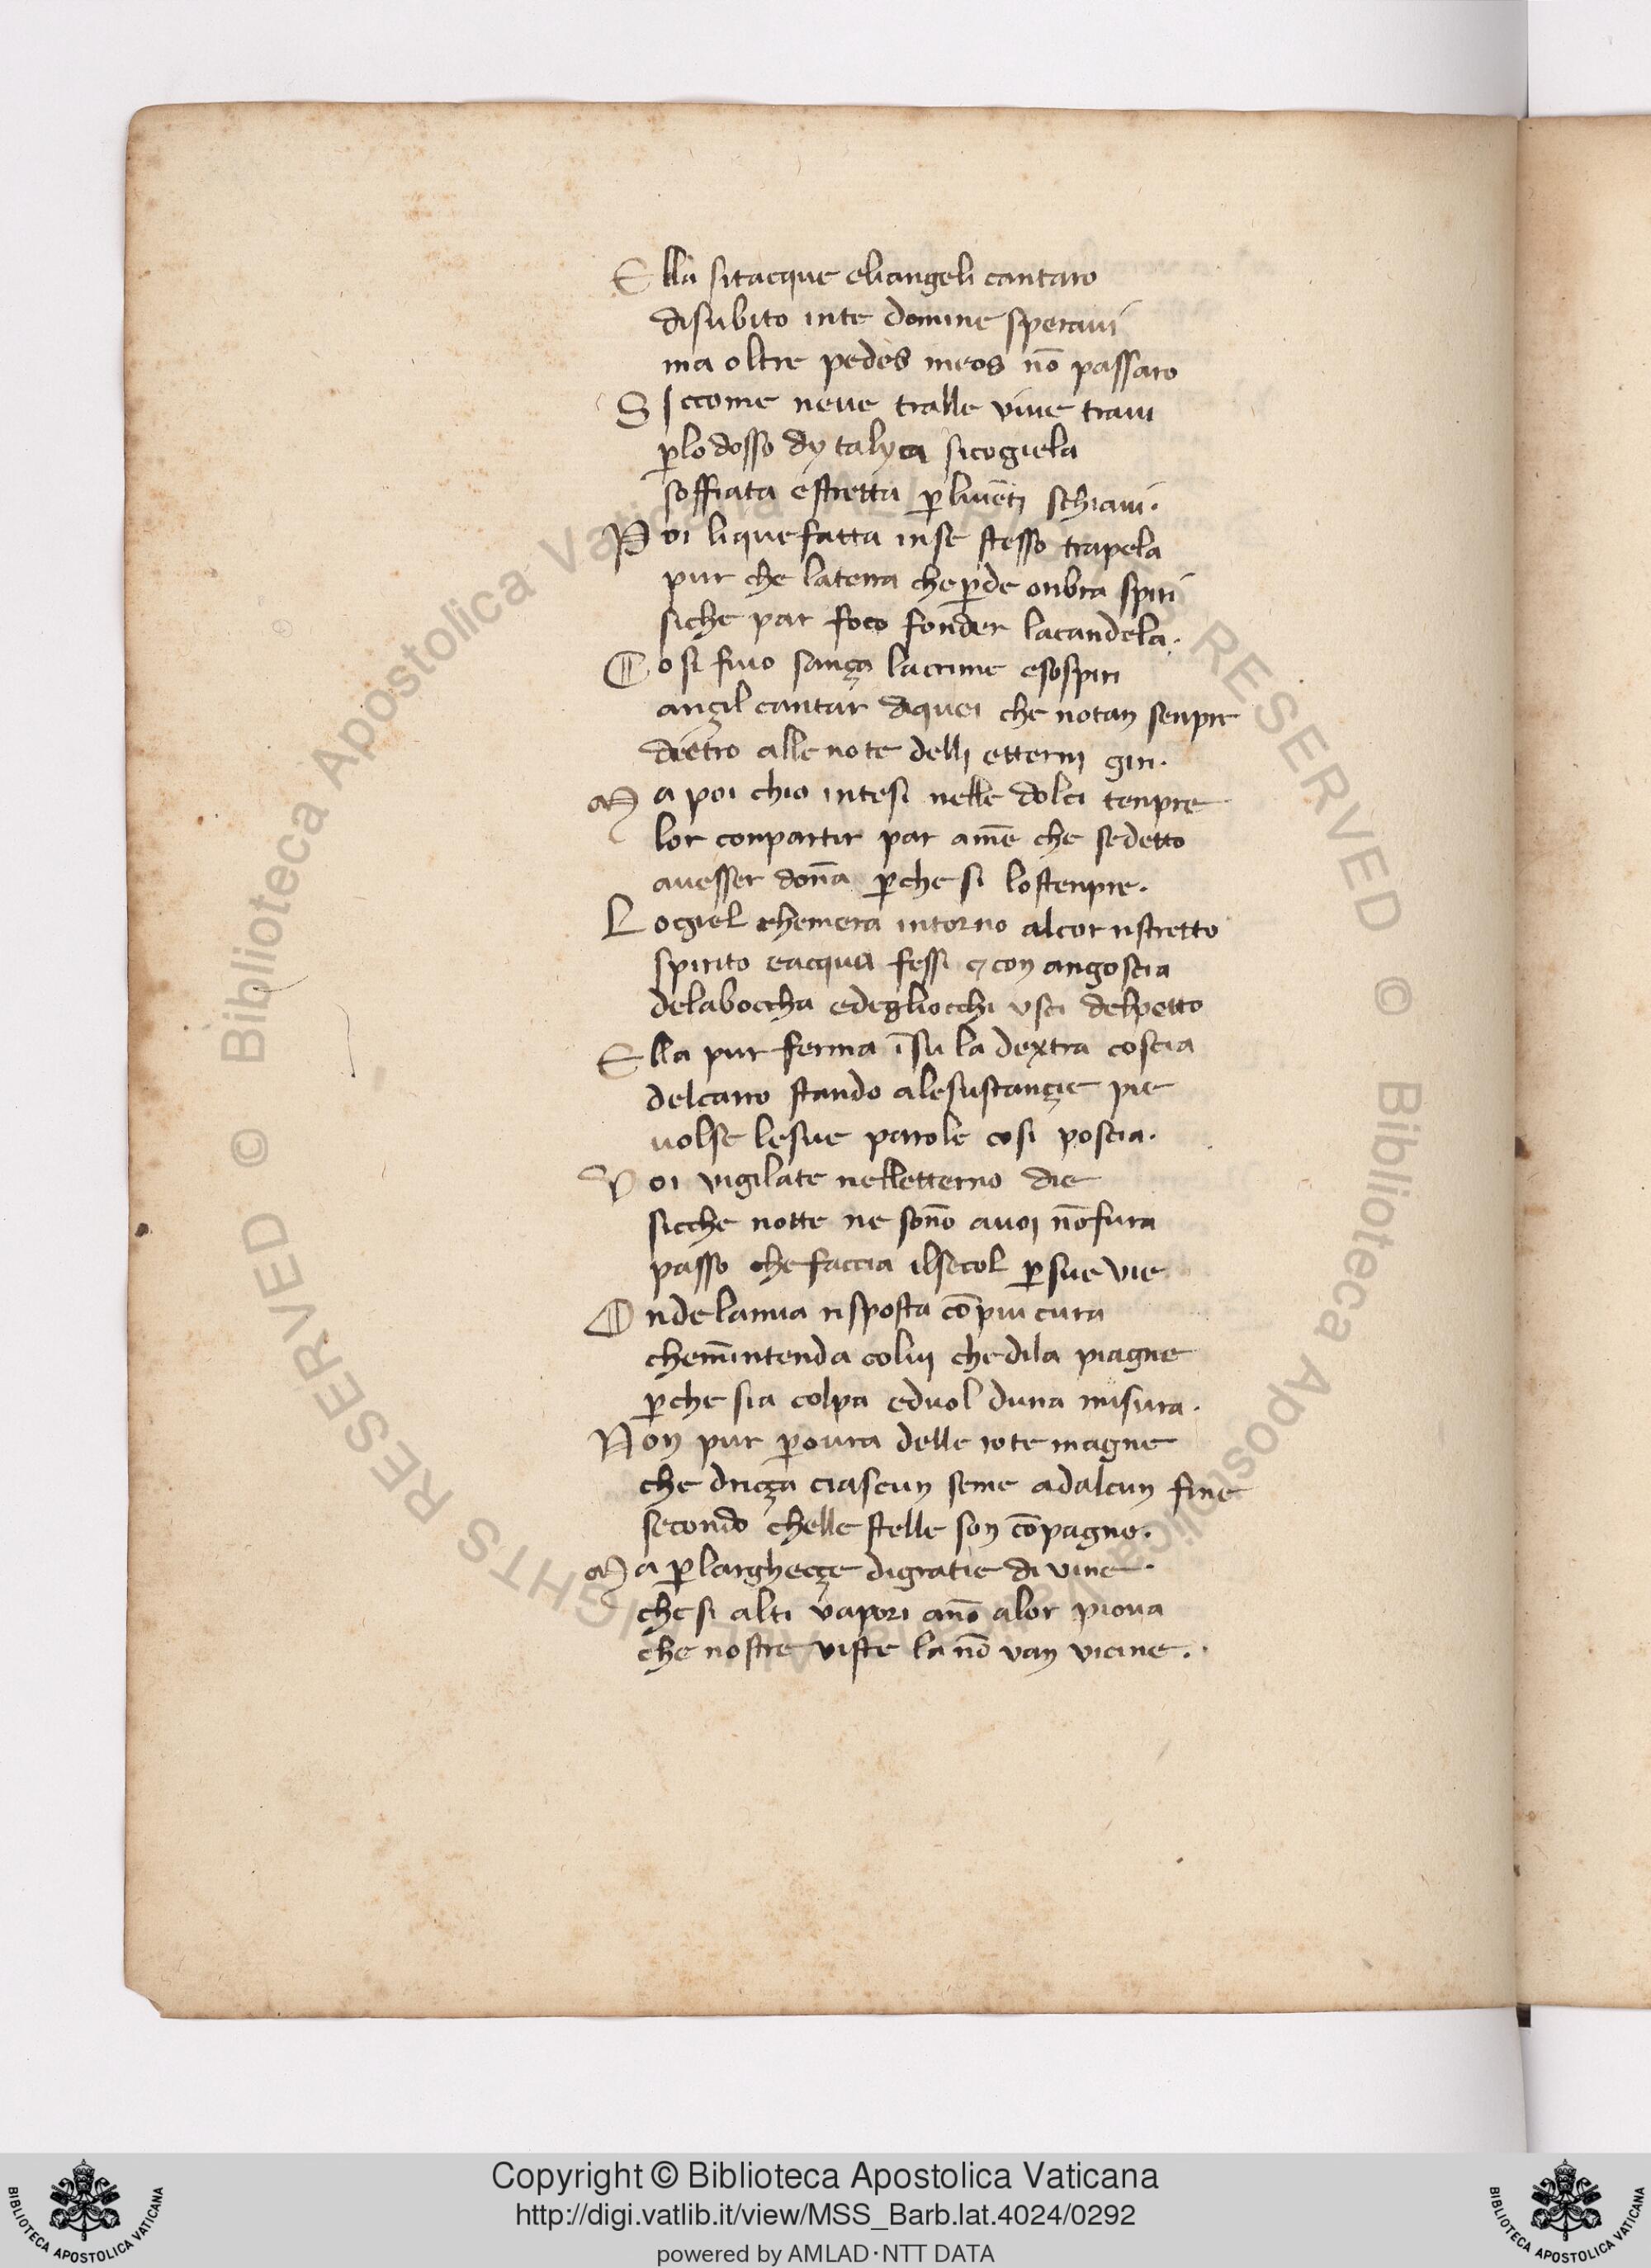 Ella sitacque eliangeli cantaro
disubito inte domine speraui
ma oltre pedes meos nō passaro
Siccome neue tralle viue traui
p̲lo dosso dy talyca sicogiela
soffiata estretta p̲ liuētj schiaui.
Poi liquefatta inse stesso trapela
pur che laterra chep̲de onbra spiri
siche par foco fonder lacandela.
Cosi fuio sança lacrime esospiri
ançil cantar diquei che notan senpre
dietro alle note dellj etternj giri.
Ma poi chio intesi nelle dolci tenpre
lor conpartir par amē che sedetto
auesser dōna p̲che si lostenpre.
Logiel chemera intorno alcor ristretto
spirito eacqua fessi e con angoscia
delaboccha edegliocchi vsci delpetto
Ella pur ferma īsu la dextra coscia
delcarro stando alesustançie pie
uolse lesue parole cosi poscia.
Voi vigilate nelletterno die
sicche notte ne sōno auoj nōfura
passo chefaccia ilsecol p̲ sue vie
Ondelamia risposta cō piu cura
chem̄intenda coluj chedila piagne
p̲che sia colpa eduol duna misura.
Non pur p̲oura delle rote magne
che driçça ciascun seme adalcun fine
secondo chelle stelle son cōpagne.
Ma p̲ larghecçe digratie diuine.
chesi alti vapori āno alor piova
che nostre viste la nō van vicine.
© Biblioteca Apostolica Vaticana ALL RIGHTS RESERVED © Biblioteca Apostolica Vaticana ALL RIGHTS RESERVED
Copyright © Biblioteca Apostolica Vaticana
http://digi.vatlib.it/view/MSS_Barb.lat.4024/0292
powered by AMLAD·NTT DATA
BIBLIOTECA APOSTOLICA VATICANA
BIBLIOTECA APOSTOLICA VATICANA